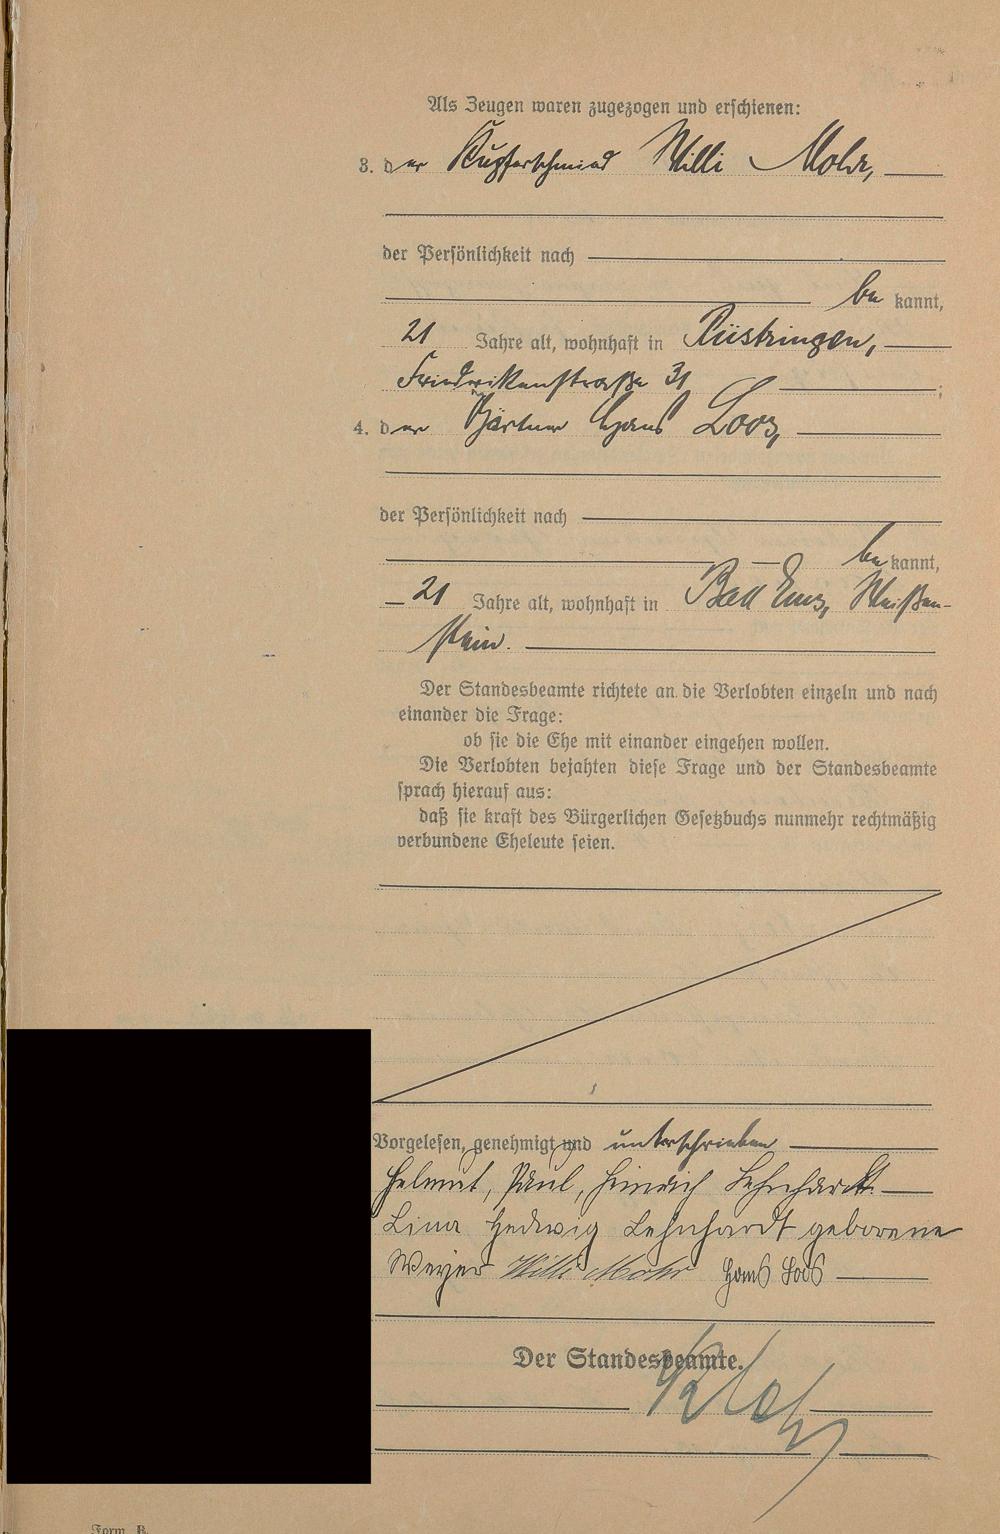 Als Zeugen waren zugezogen und erschienen:
3. der Kupferschmied Willi Mohr,
der Persönlichkeit nach
bekannt,
21 Jahre alt, wohnhaft in Rüstringen,
Friedrikenstraße 31;
4. der Gärtner Hans Loos,
der Persönlichkeit nach
bekannt,
21 Jahre alt, wohnhaft in Bad Ems, Weißen-
stein.
Der Standesbeamte richtete an die Verlobten einzeln und nach
einander die Frage:
ob sie die Ehe mit einander eingehen wollen.
Die Verlobten bejahten diese Frage und der Standesbeamte
sprach hierauf aus:
daß sie kraft des Bürgerlichen Gesetzbuchs nunmehr rechtmäßig
verbundene Eheleute seien.
Vorgelesen, genehmigt und unterschrieben
Helmut, Paul, Hinrich Lehnhardt
Lina Hedwig Lehnhardt geborene
Weyer Willi Mohr Hans Loos
Der Standesbeamte.
Form. B.